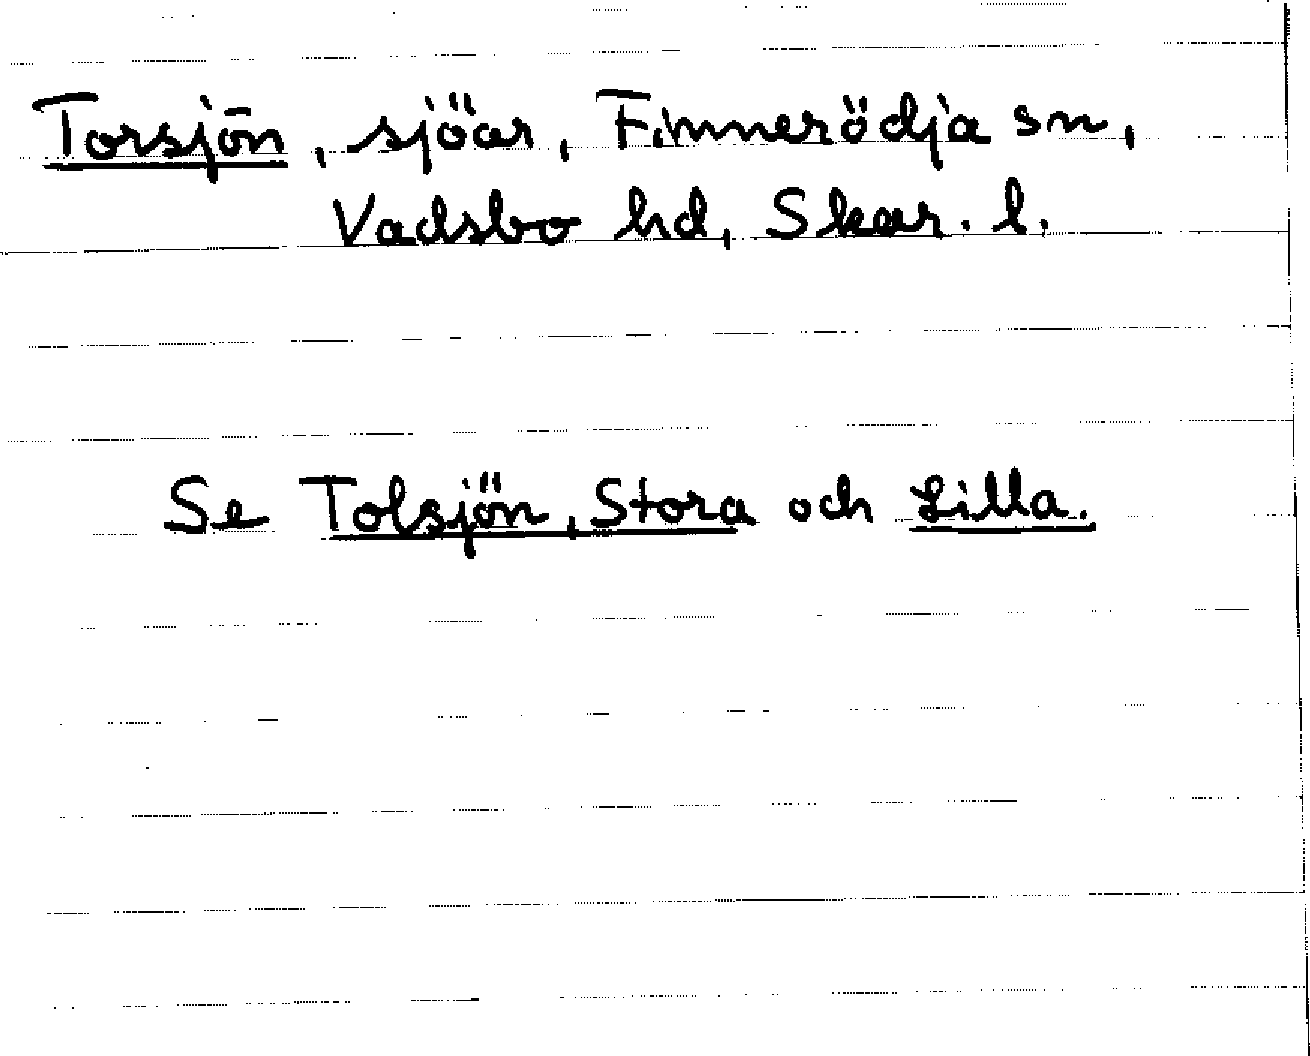 Torsjön, sjöar, Finnerödja sn,
Vadsbo hd, Skar. l.
Se Tolsjön, Stora och Lilla.